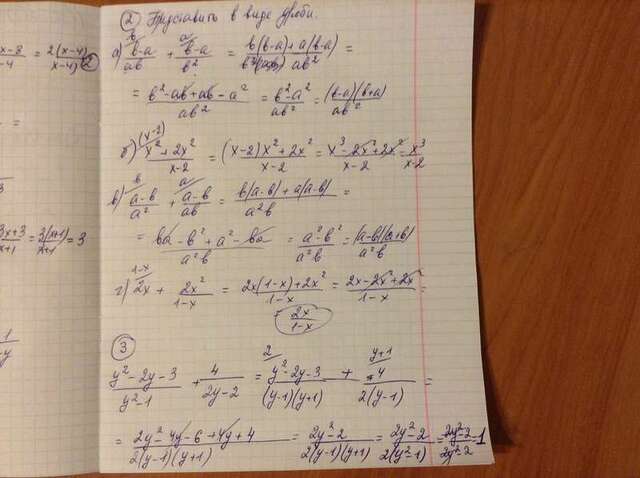 x-8/-4 = 2(x-4)/x-4) = 2
3x+3/x+1 = 3(x+1)/x+1 = 3
② Представить в виде дроби.
а) b-a/ab + b-a/b² = b(b-a)+a(b-a)/ab² =
= b²-ab+ab-a²/ab² = b²-a²/ab² = (b-a)(b+a)/ab²
б) x² + 2x²/x-2 = (x-2)x²+2x²/x-2 = x³-2x²+2x²/x-2 = x³/x-2
в) a-b/a² + a-b/ab = b(a-b)+a(a-b)/a²b =
= ba-b²+a²-ba/a²b = a²-b²/a²b = (a-b)(a+b)/a²b
г) 2x + 2x²/1-x = 2x(1-x)+2x²/1-x = 2x-2x²+2x²/1-x =
= 2x/1-x
③
y²-2y-3/y²-1 + 4/2y-2 = y²-2y-3/(y-1)(y+1) + 4/2(y-1) =
= 2y²-4y-6+4y+4/2(y-1)(y+1) = 2y²-2/2(y-1)(y+1) = 2y²-2/2(y²-1) = 2y²-2/2y²-2 = 1